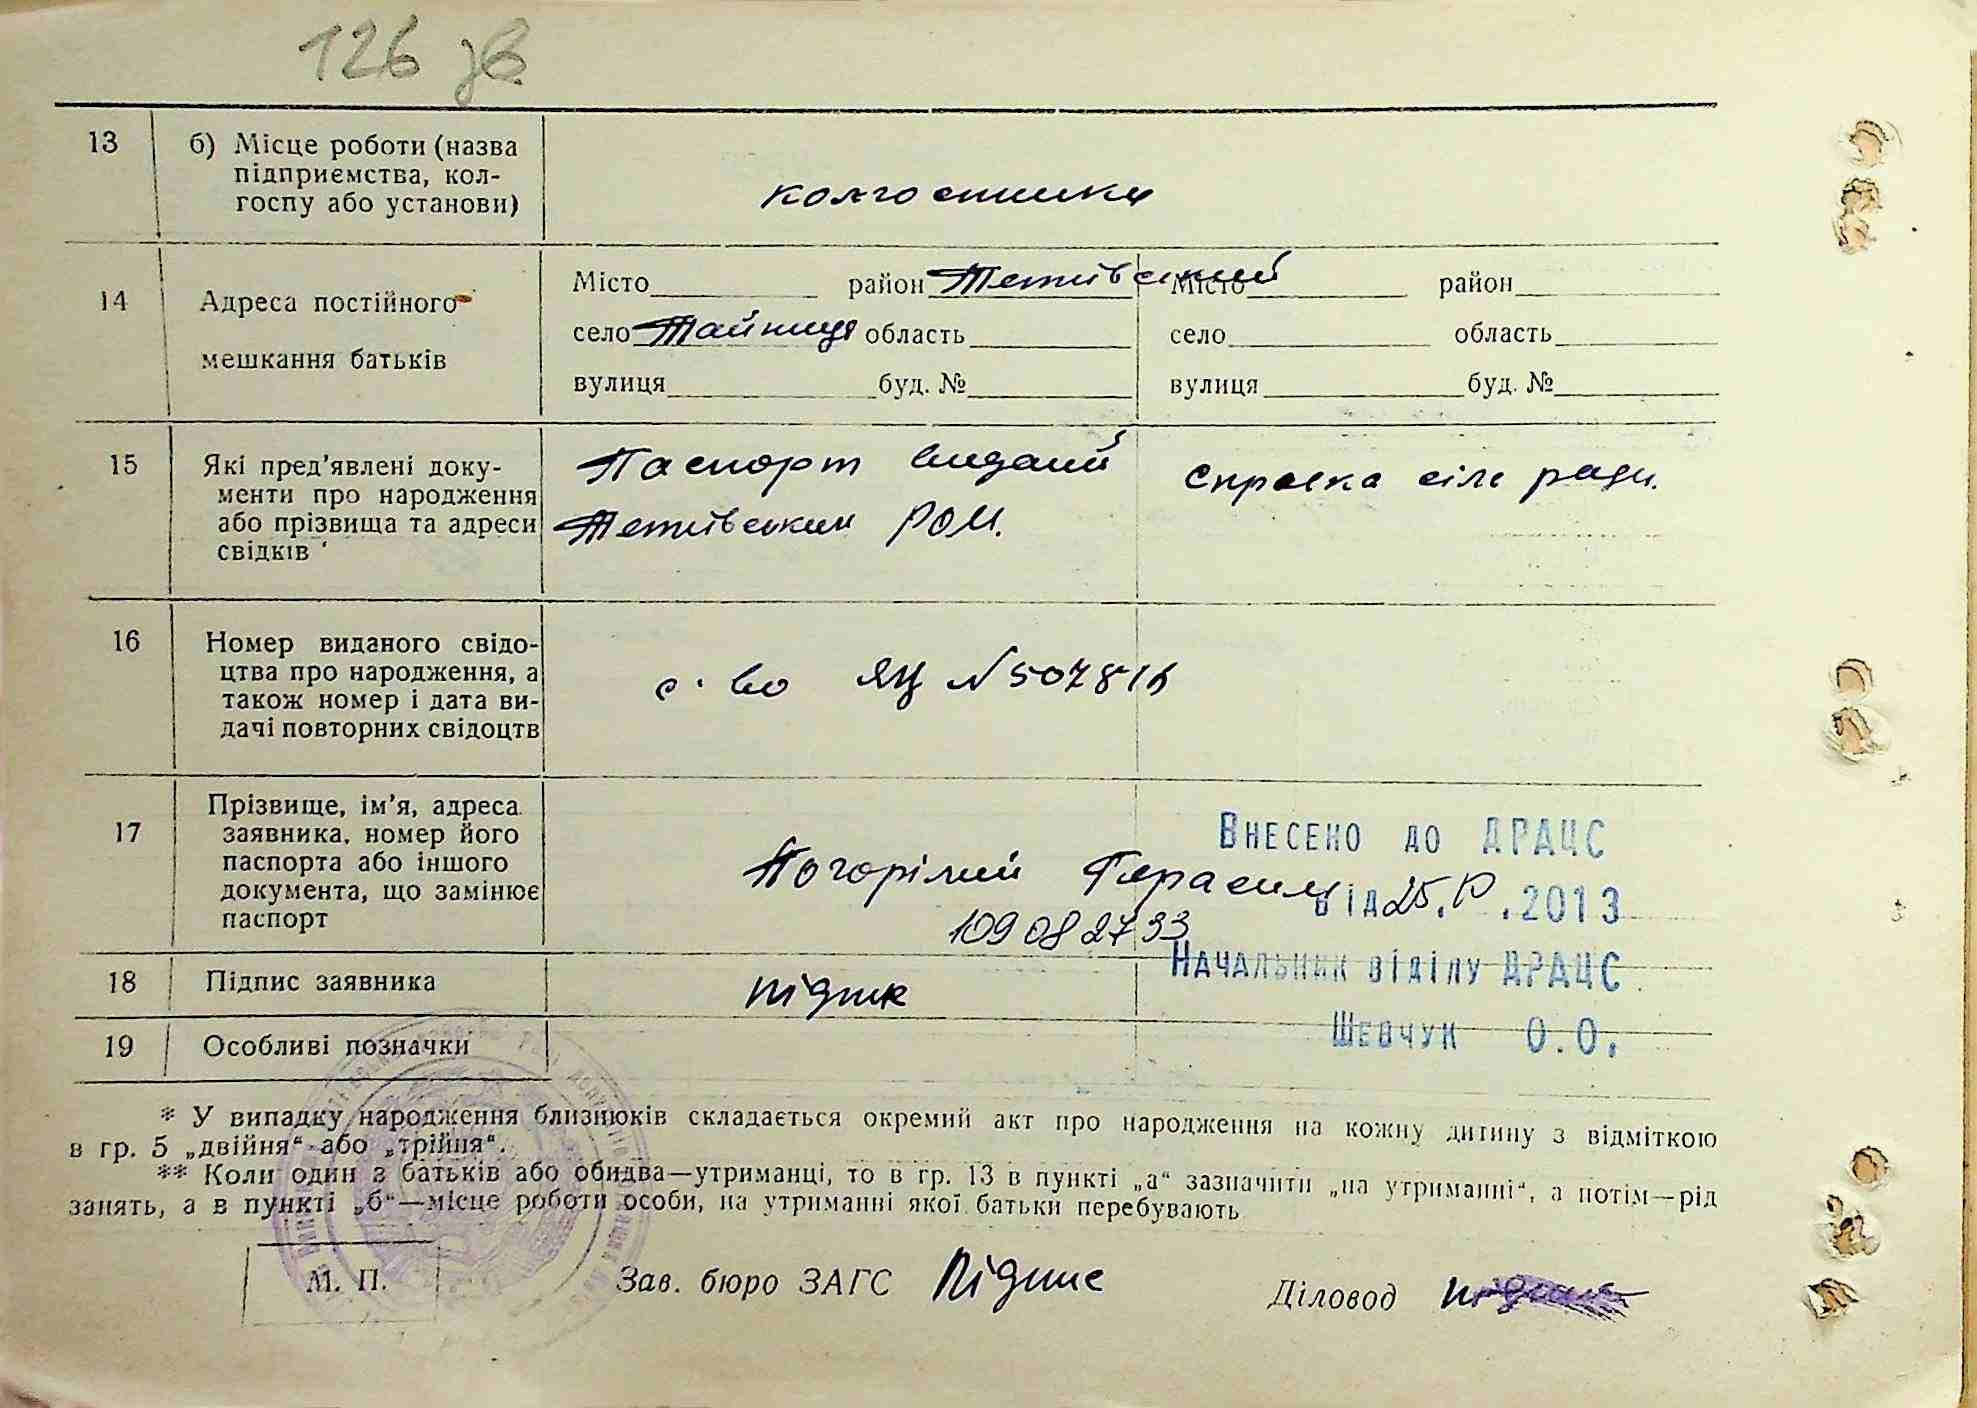 126 зв
13 б) Місце роботи (назва
підприємства, кол-
госпу або установи)
колгоспники
14 Адреса постійного
мешкання батьків
Місто район Тетіївський Місто район
село Тайниця область село область
вулиця буд. № вулиця буд. №
15 Які пред'явлені доку-
менти про народження
або прізвища та адреси
свідків
Паспорт виданий
Тетіївським РОМ.
Справка сіль ради.
16 Номер виданого свідо-
цтва про народження, а
також номер і дата ви-
дачі повторних свідоцтв
с-во ЯЦ №
17 Прізвище, ім'я, адреса
заявника, номер його
паспорта або іншого
документа, що замінює
паспорт
Погорілий Герасим
109082733
Внесено до ДРАЦС
від 25. .2013
Начальник відділу ДРАЦС
Шевчук О.О.
18 Підпис заявника підпис
19 Особливі позначки
* У випадку народження близнюків складається окремий акт про народження на кожну дитину з відміткою
в гр. 5 „двійня“ або „трійня“.
** Коли один з батьків або обидва—утриманці, то в гр. 13 в пункті „а“ зазначити „на утриманні“, а потім—рід
занять, а в пункті „б“—місце роботи особи, на утриманні якої батьки перебувають
М. П. Зав. бюро ЗАГС Підпис Діловод підпис